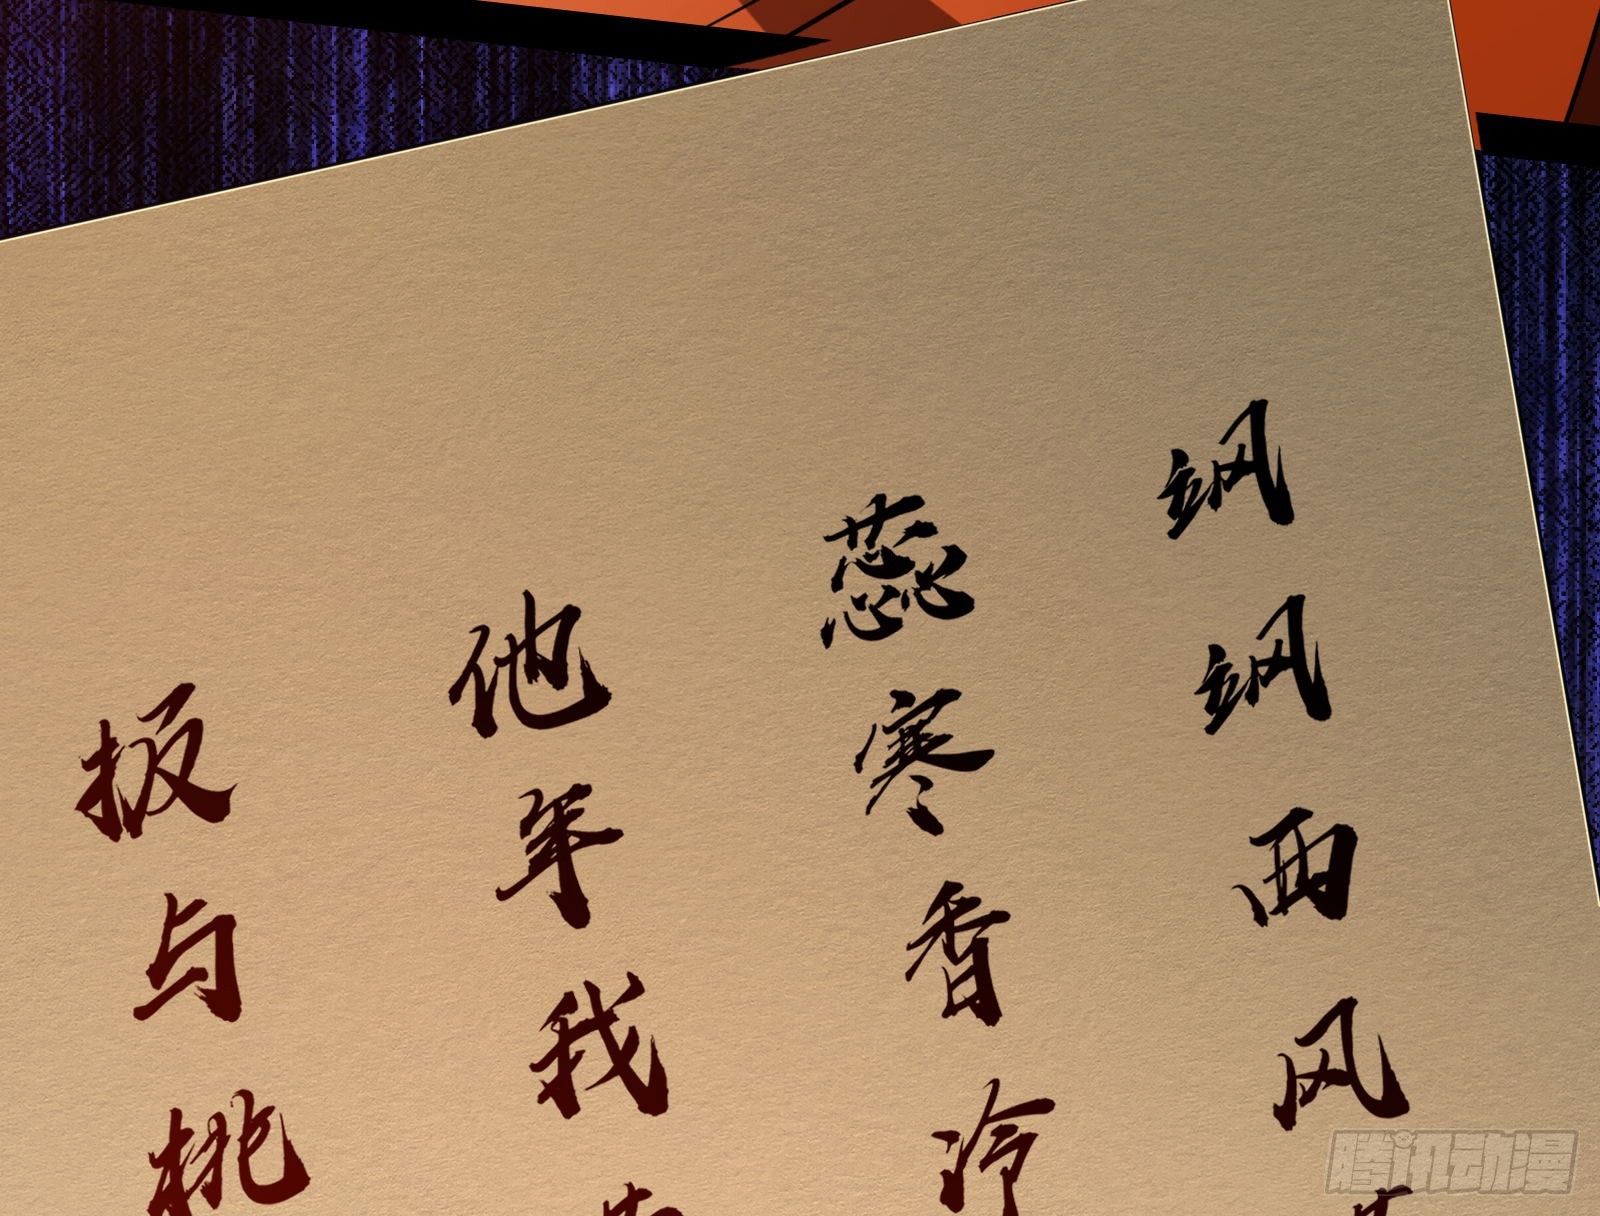 飒飒西风
蕊寒香冷
他年我
扳与桃
腾讯动漫